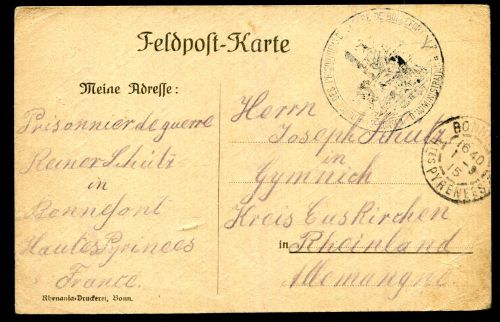 Feldpost-Karte
Meine Adresse:
Prisonnier de guerre
Reiner Schütz
in
Bonnefont
Hautes Pyrinees
France.
Rhenania-Druckerei, Bonn.
Herrn
Joseph Schütz
in
Gymnich
Kreis Euskirchen
in Rheinland
Allemangne.
16 40
15
PYRENEES